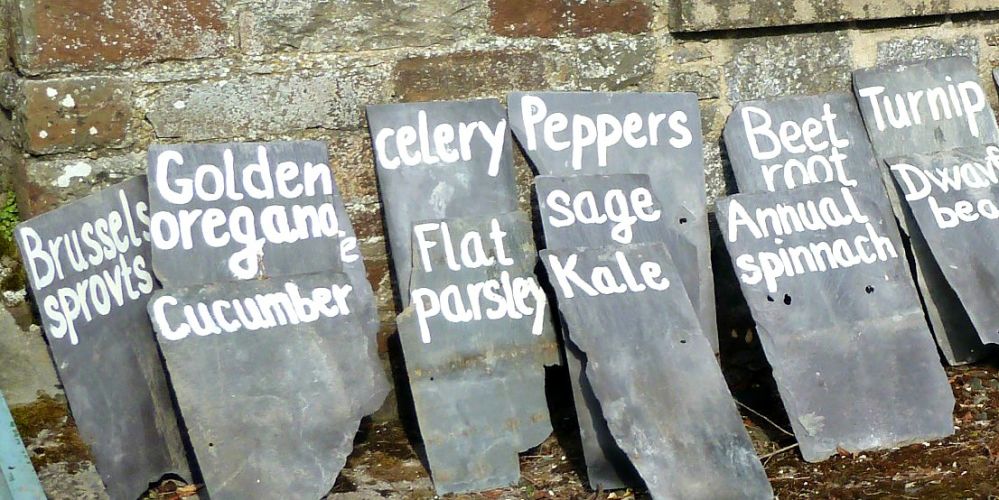 Brussels
sprovts
Golden
oregano
Cucumber
celery
Flat
parsley
Peppers
sage
Kale
Beet
root
Annual
spinnach
Turnip